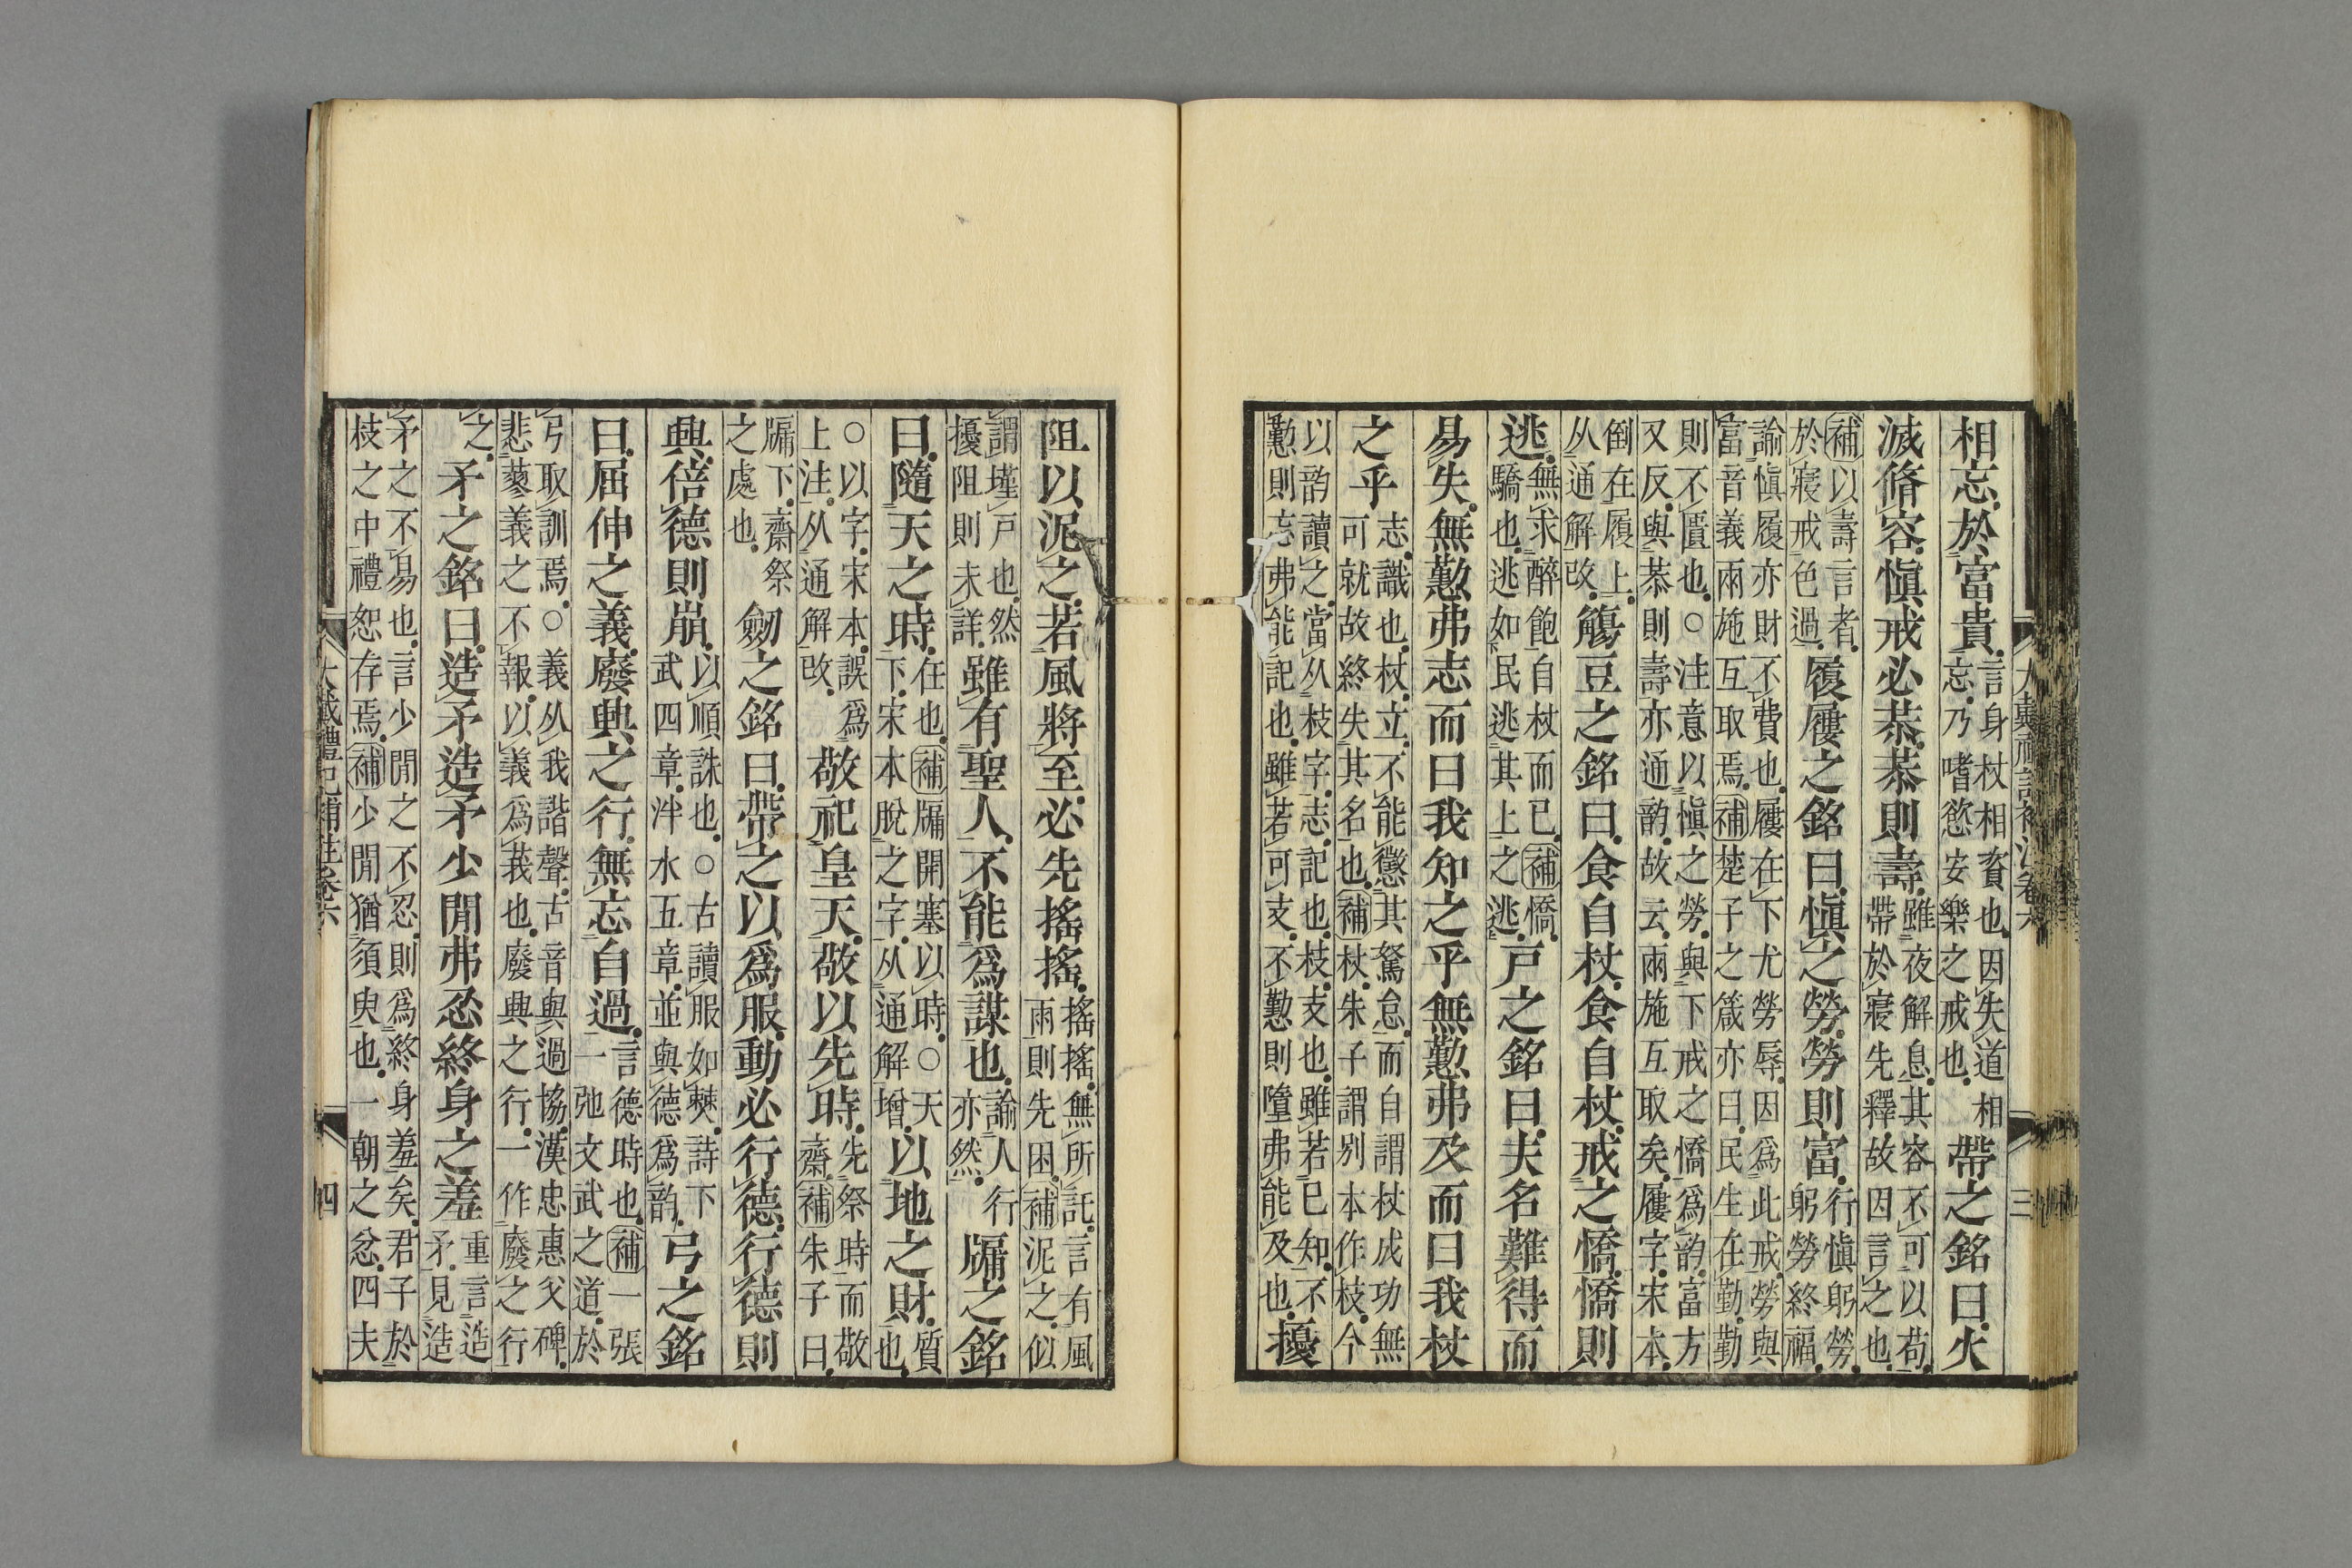 相忘於富貴。言身杖相資也。因失道相忘。乃嗜慾安樂之戒也。帶之銘曰。火
滅脩容。愼戒必恭。恭則壽。雖夜解息。其容不可以苟。帶於寢先釋故因言之也。
補以壽言者。於寢戒色過。履屨之銘曰。愼之勞。勞則富。行愼躬勞。躬勞終福。
諭愼履亦財不費也。屨在下尤勞辱。因爲此戒。勞與富音義兩施互取焉。補楚子之箴亦曰。民生在勤。勤
則不匱也。○注意以愼之勞。與下戒之憍爲韵。富方又反。與恭則壽亦通韵。故云兩施互取矣。屨字宋本
倒在履上。从通解改。觴豆之銘曰。食自杖。食自杖。戒之憍。憍則
逃。無求醉飽自杖而已。補憍。驕也。逃如民逃其上之逃。戸之銘曰。夫名難得而
易失。無懃弗志而曰我知之乎無懃弗及而曰我杖
之乎志。識也。杖。立。不能懲其駑怠。而自謂杖成功無可就故終失其名也。補杖。朱子謂別本作枝。今
以韵讀之。當从枝字。志。記也。枝。支也。雖若已知。不懃則忘弗能記也。雖若可支。不懃則墮弗能及也。擾
大戴禮記補注卷六
三
阻以泥之。若風將至。必先搖搖。搖搖。無所託。言有風雨則先困。補泥之。似
謂墐戸也。然擾阻則未詳。雖有聖人。不能爲謀也。諭人行亦然。牖之銘
曰。隨天之時。以地之財。任也。補牖開塞以時。○天下。宋本脫之字。从通解增。質也。
○以字。宋本。誤爲上注。从通解改。敬祀皇天。敬以先時。先祭時而敬齋。補朱子曰。
牖下。齋祭之處也。劒之銘曰。帶之以爲服。動必行德。行德則
興。倍德則崩。以順誅也。○古讀服如僰。詩下武四章。泮水五章。並與德爲韵。弓之銘
曰。屈伸之義。廢興之行。無忘自過。言德時也。補一張一弛文武之道。於
弓取訓焉。○義从我諧聲。古音與過協。漢忠惠父碑。悲蓼義之不報。以義爲莪也。廢興之行。一作廢之行
之。矛之銘曰。造矛造矛。少閒弗忍。終身之羞重言造矛。見造
矛之不易也。言少閒之不忍。則爲終身羞矣。君子於枝之中禮恕存焉。補少閒猶須臾也。一朝之忿。四夫
大戴禮記補注卷六
四